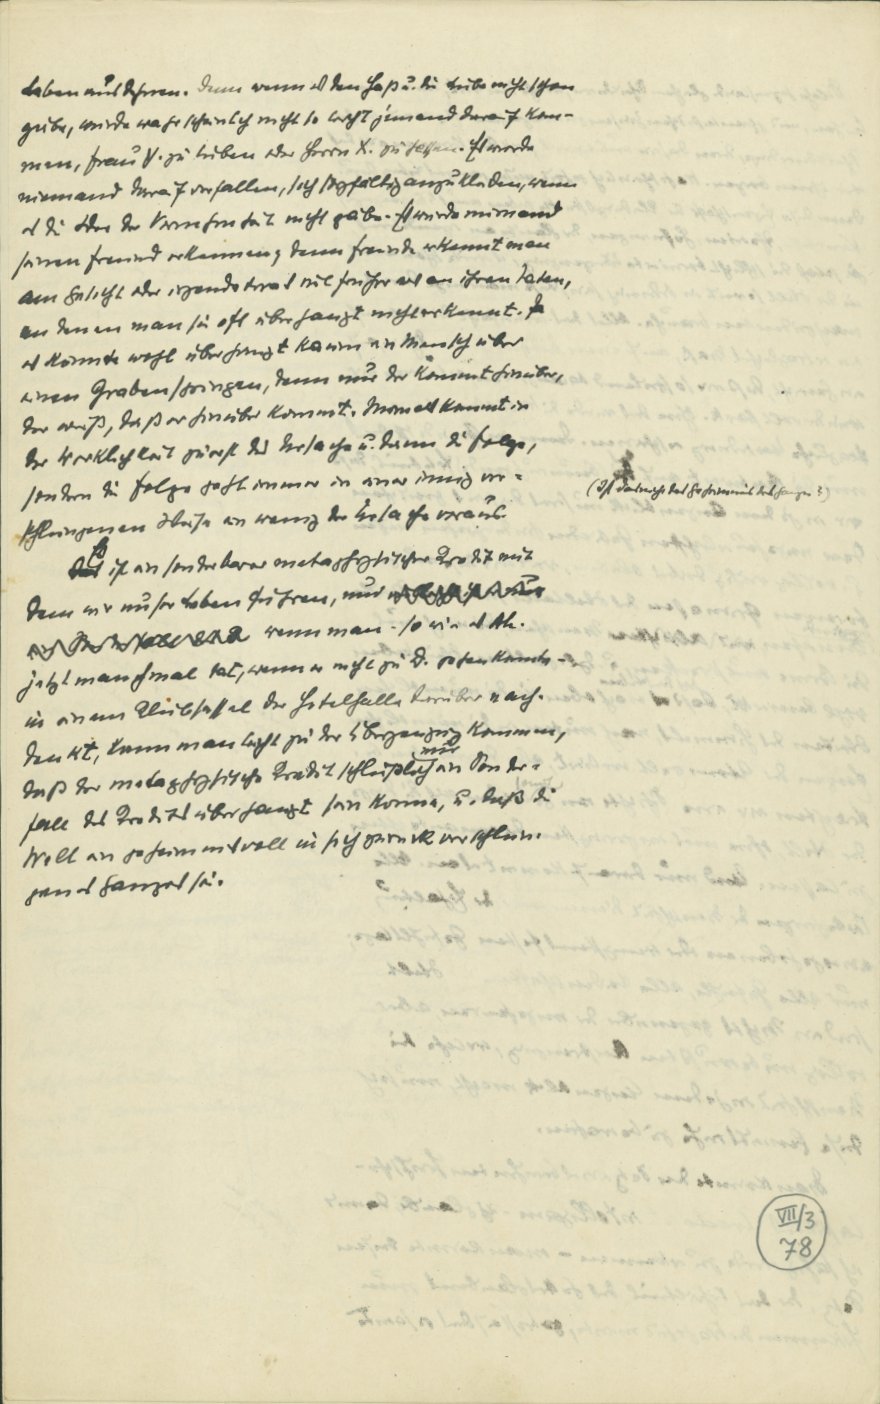 Leben aus dehnen. Denn wenn es den Haß u. die Liebe nicht schon
gäbe, würde wahrscheinlich nicht so leicht jemand darauf kom-
men, Frau Y. zu lieben oder Herrn X. zu hassen. Es würde
niemand darauf verfallen, sich sorgfältig anzukleiden, wenn
es die Idee der Vornehmheit nicht gäbe. Es würde niemand
seinen Freund erkennen, denn Freunde erkennt man
am Gesicht oder irgendetwas viel früher als an ihren Taten,
an denen man sie oft überhaupt nicht erkennt. Ja
es könnte wohl überhaupt kaum ein Mensch über
einen Graben springen, denn nur der kommt hinüber,
der weiß, daß er hinüber kommt. Niemals kommt in
der Wirklichkeit zuerst die Ursache u. dann die Folge,
sondern die Folge geht immer in einer innig ver-
schlungenen Weise ein wenig der Ursache voraus.
(Ist das nicht das Geheimnis des Ganzen?)
Es ist ein sonderbarer metaphysischer Kredit mit
dem wir unser Leben führen, und
wenn man - so wie es Ah.
jetzt manchmal tat, wenn er nicht zu D. gehen konnte -
in einem Klubsessel der Hotelhalle darüber nach-
denkt, kann man leicht zu der Überzeugung kommen,
daß der metaphysische Kredit schließlich nur ein Sonder-
fall des Kredits überhaupt sein könne, u. daß die
Welt ein geheimnisvoll in sich zurück verschlun-
genes Ganzes sei.
VII/3
78